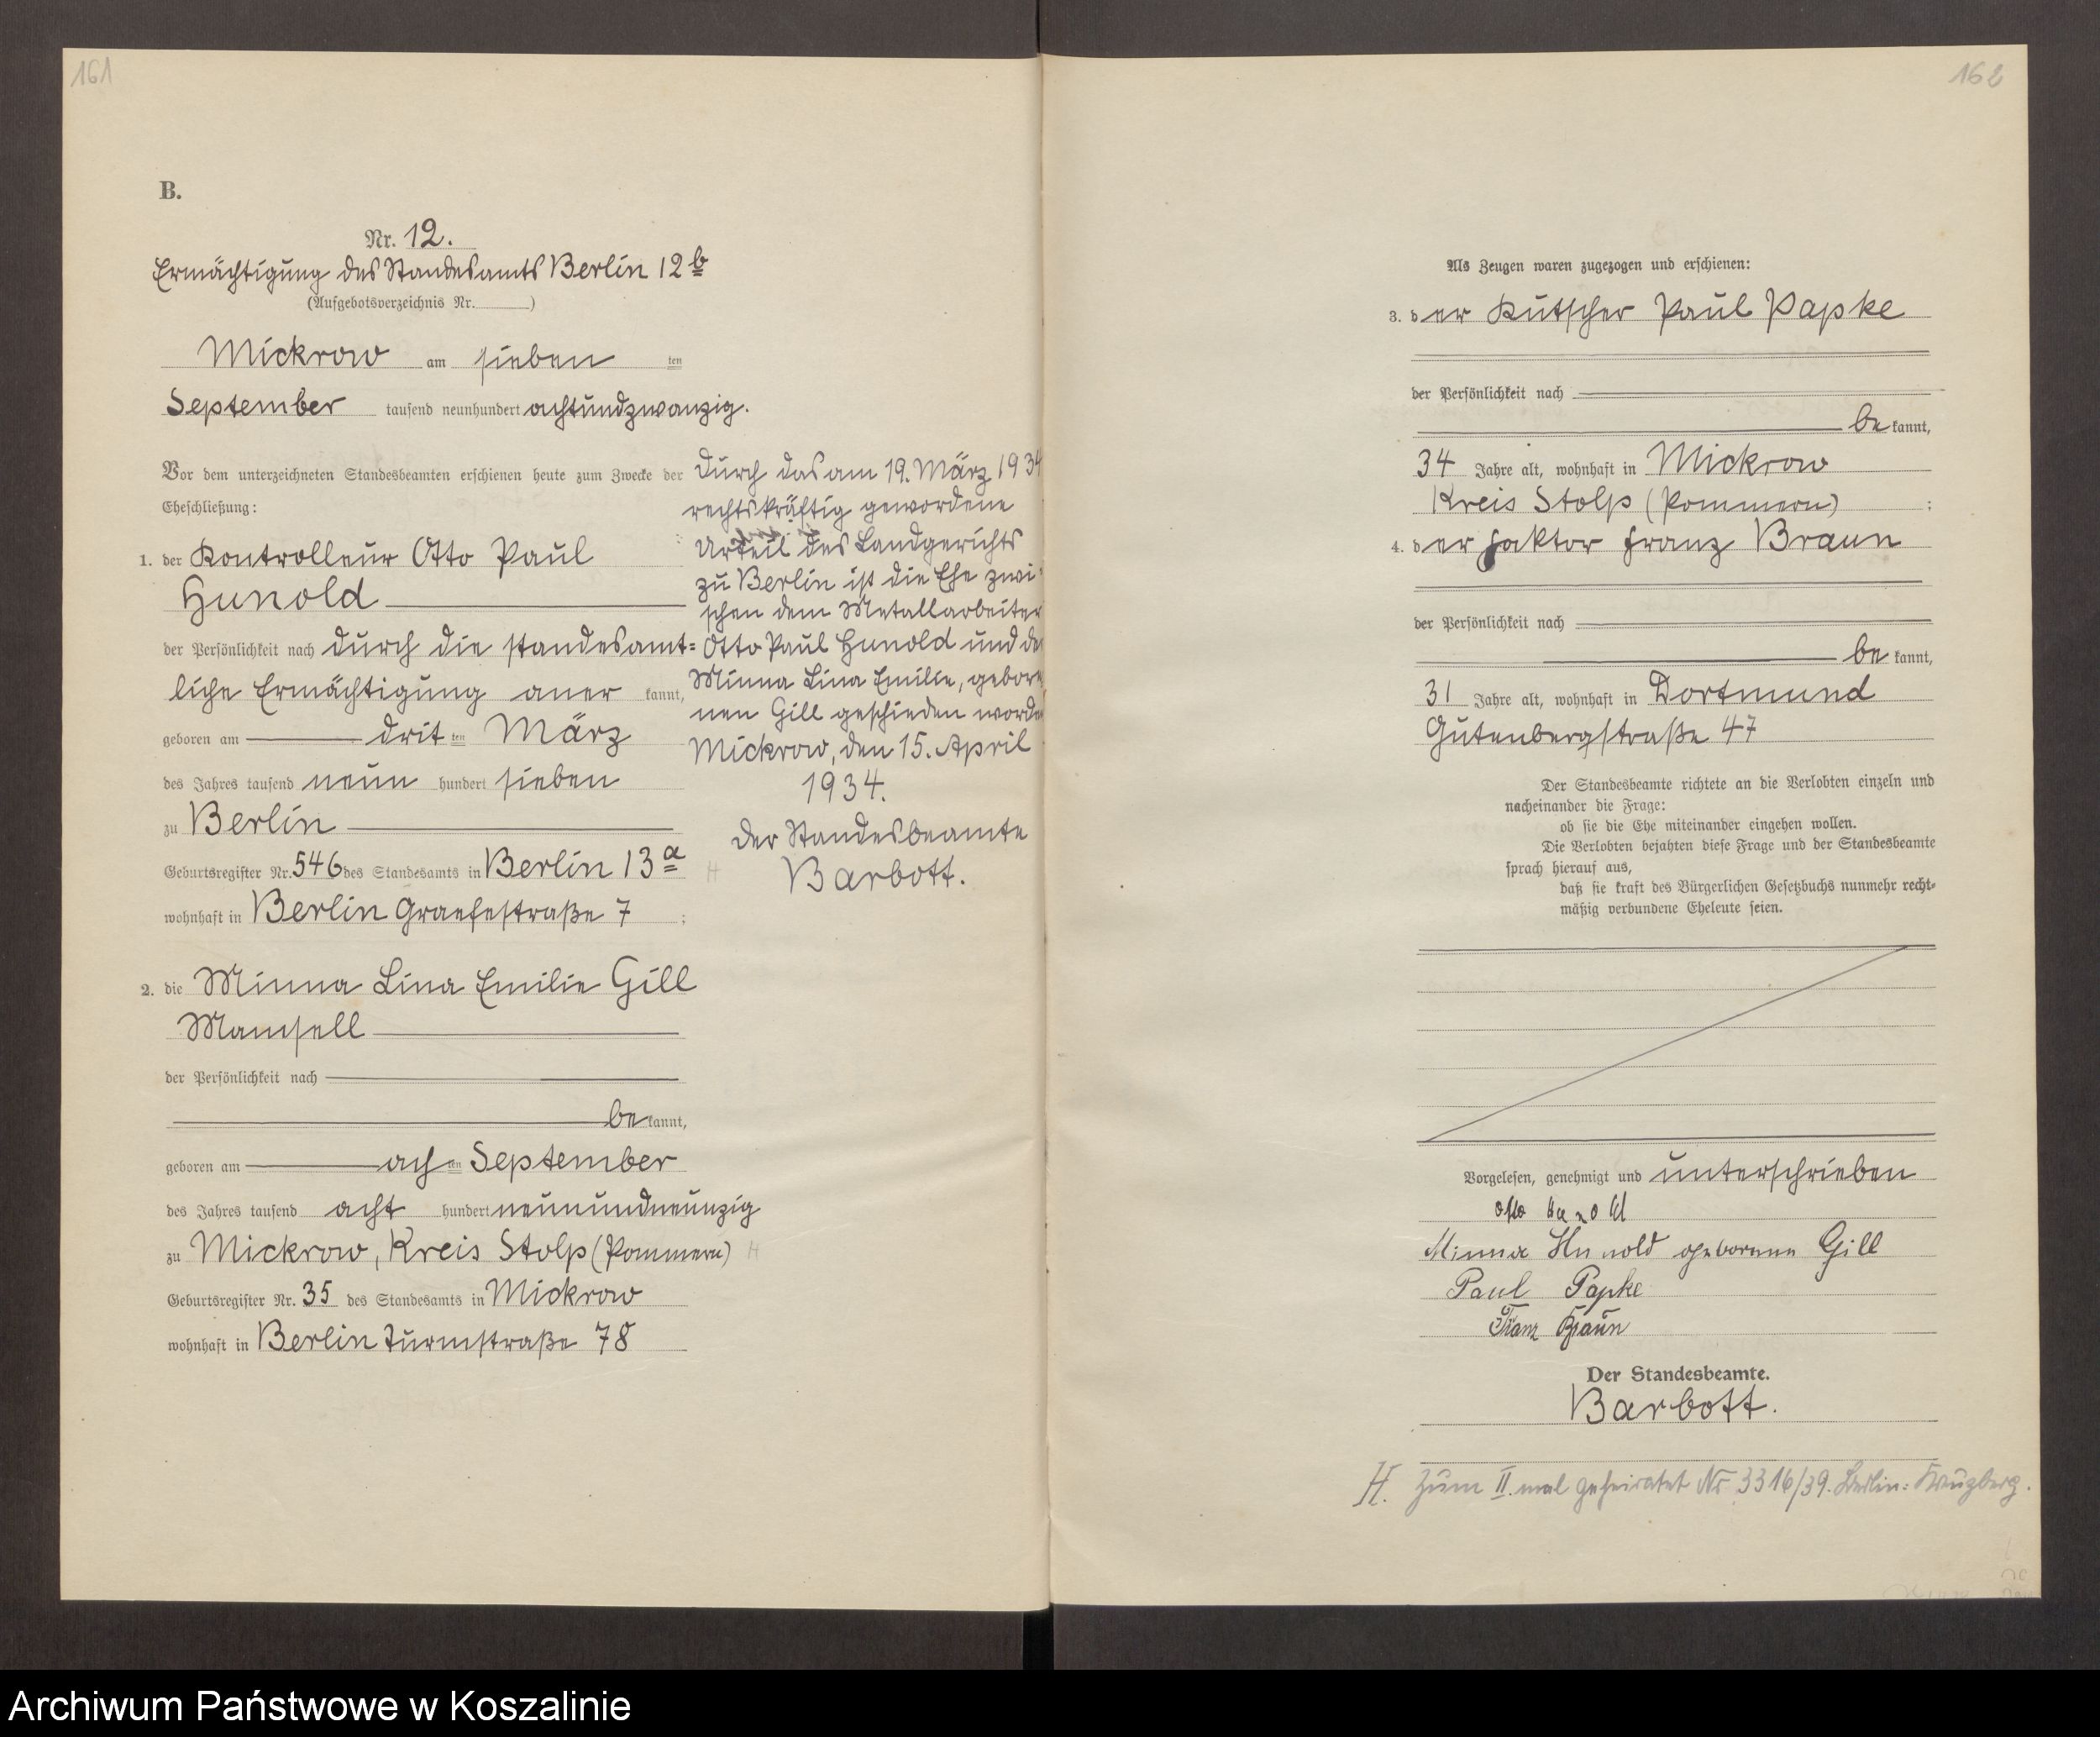 161
B.
Nr. 12.
Ermächtigung des Standesamts Berlin 12b
(Aufgebotsverzeichnis Nr. )
Mickrow am sieben ten
September tausend neunhundert achtundzwanzig.
Vor dem unterzeichneten Standesbeamten erschienen heute zum Zwecke der
Eheschließung:
1. der Kontrolleur Otto Paul
Hunold
der Persönlichkeit nach durch die standesamt=
liche Ermächtigung aner kannt,
geboren am drit ten März
des Jahres tausend neun hundert sieben
zu Berlin
Geburtsregister Nr. 546 des Standesamts in Berlin 13a
wohnhaft in Berlin Graefestraße 7 ;
2. die Minna Lina Emilie Gill
Mamsell
der Persönlichkeit nach
be kannt,
geboren am ach ten September
des Jahres tausend acht hundert neunundneunzig
zu Mickrow, Kreis Stolp (Pommern) H
Geburtsregister Nr. 35 des Standesamts in Mickrow
wohnhaft in Berlin Turmstraße 78
Durch das am 19. März 1934
rechtskräftig gewordene
Urteil des Landgerichts
zu Berlin ist die Ehe zwi=
schen dem Metallarbeiter
Otto Paul Hunold und de
Minna Lina Emilie, gebore
nen Gill geschieden worde
Mickrow, den 15. April
1934.
Der Standesbeamte
H Barbott.
162
Als Zeugen waren zugezogen und erschienen:
3. d er Kutscher Paul Papke
der Persönlichkeit nach
be kannt,
34 Jahre alt, wohnhaft in Mickrow
Kreis Stolp (Pommern) ;
4. d er Faktor Franz Braun
der Persönlichkeit nach
be kannt,
31 Jahre alt, wohnhaft in Dortmund
Gutenbergstraße 47
Der Standesbeamte richtete an die Verlobten einzeln und
nacheinander die Frage:
ob sie die Ehe miteinander eingehen wollen.
Die Verlobten bejahten diese Frage und der Standesbeamte
sprach hierauf aus,
daß sie kraft des Bürgerlichen Gesetzbuchs nunmehr recht=
mäßig verbundene Eheleute seien.
Vorgelesen, genehmigt und unterschrieben
Otto Hunold
Minna Hunold geborene Gill
Paul Papke
Franz Braun
Der Standesbeamte.
Barbott.
H. Zum II. mal geheiratet Nr 3316/39. Berlin: Kreuzberg.
Archiwum Państwowe w Koszalinie